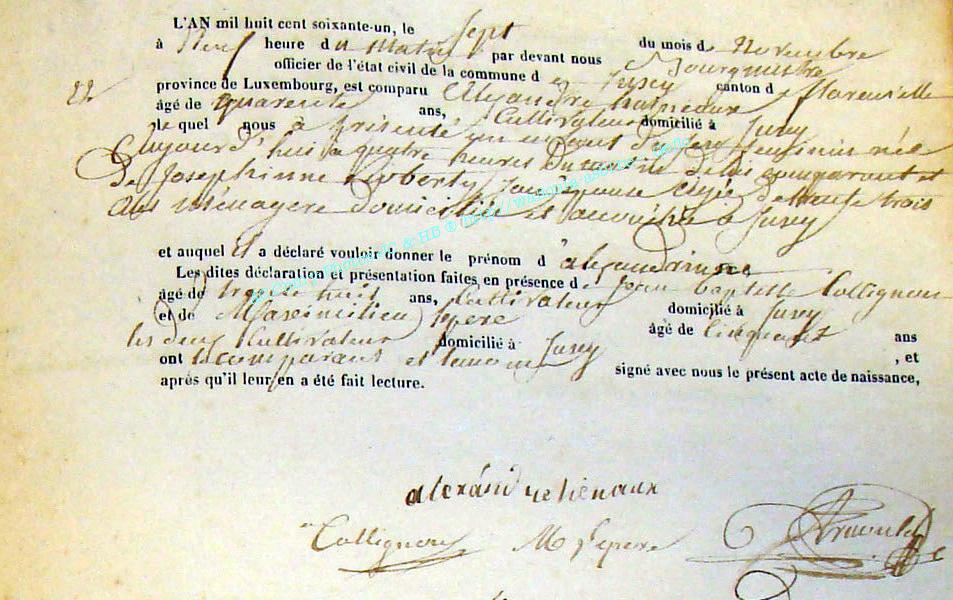 L'AN mil huit cent soixante-un, le sept du mois de Novembre
à Neuf heure du Matin par devant nous Bourgmestre
officier de l'état civil de la commune de Jusey canton de florenville
22 province de Luxembourg, est comparu Alexandre
âgé de quarante ans, Cultivateur domicilié à Jusey
le quel nous a présenté un enfant du sexe feminin née
aujourd'hui a quatre heures du matin de lui comparant et
de Josephinne son épouse agée de trente trois
ans ménagere domiciliée et accouchée a Jusey
et auquel il a déclaré vouloir donner le prénom d'alexandrinne
Les dites déclaration et présentation faites en présence de jean baptiste Collignon
âgé de trente huit ans, Cultivateur domicilié à Jusey
et de Maximilien lepere âgé de Cinquante ans
les deux Cultivateur domicilié à Jusey , et
ont le comparant et temoins signé avec nous le présent acte de naissance,
après qu'il leur en a été fait lecture.
alexandre henaux
Collignon M lepere